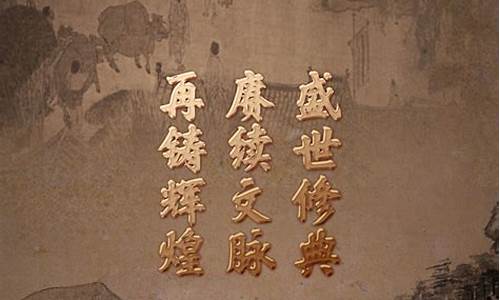 盛世修典
赓续文脉
再铸辉煌